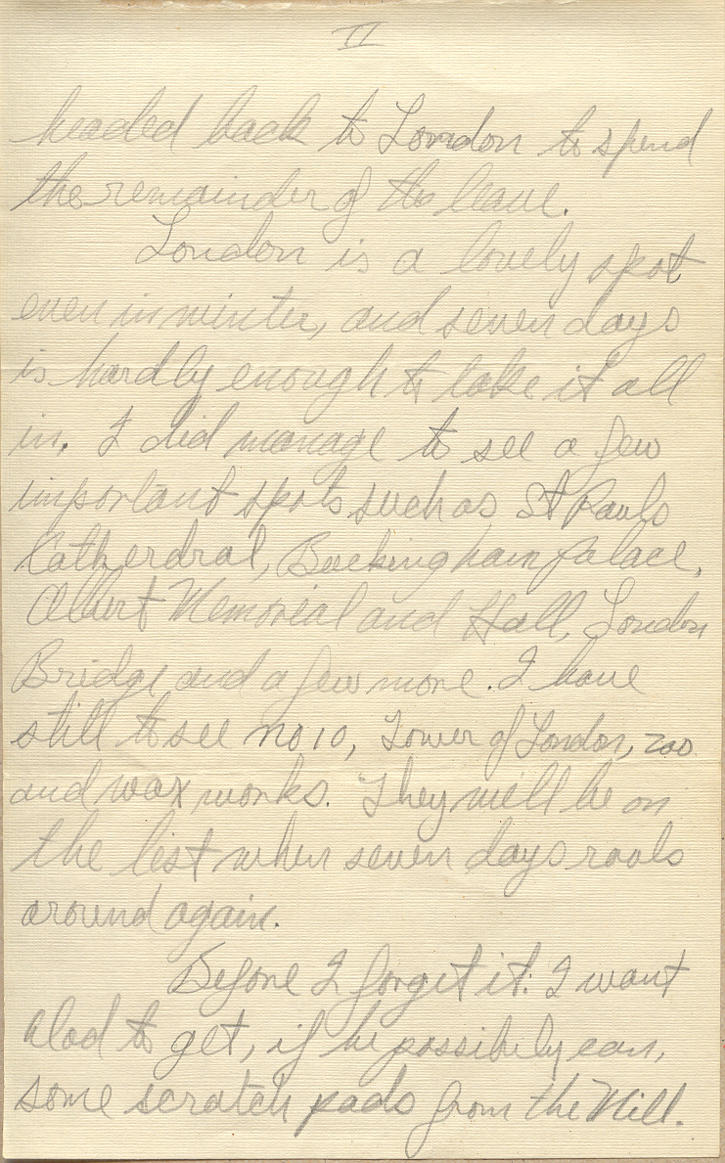 II
headed back to London to spend
the remainder of the leave.
London is a lovely spot
even in winter, and seven days
is hardly enough to take it all
in. I did manage to see a few
important spots such as St Pauls
Catherdral, Buckingham Palace,
Albert Memorial and Hall, London
Bridge and a few more. I have
still to see no 10, Tower of London, zoo
and wax works. They will be on
the list when seven days rools
around again.
Before I forget it: I want
to get, if he possibily can,
some scratch pads from the Mill.